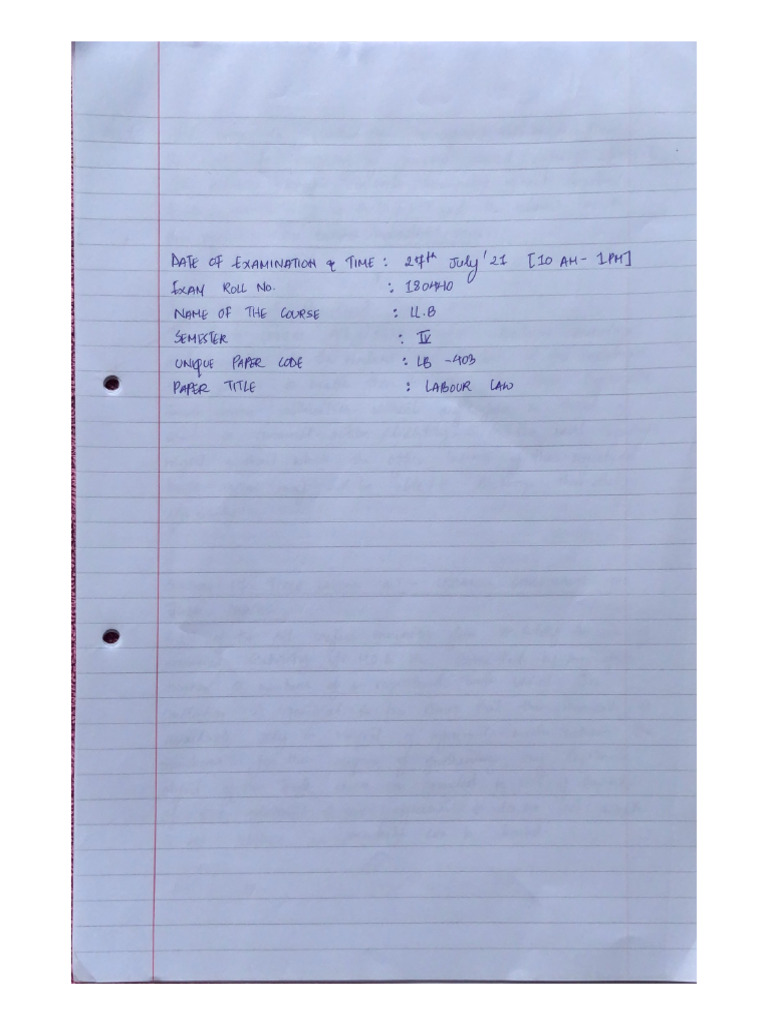 DATE OF EXAMINATION & TIME : 27th July'21 [10 AM - 1PM]
EXAM ROLL NO. :
NAME OF THE COURSE : LL.B
SEMESTER : IV
UNIQUE PAPER CODE : LB -403
PAPER TITLE : LABOUR LAW